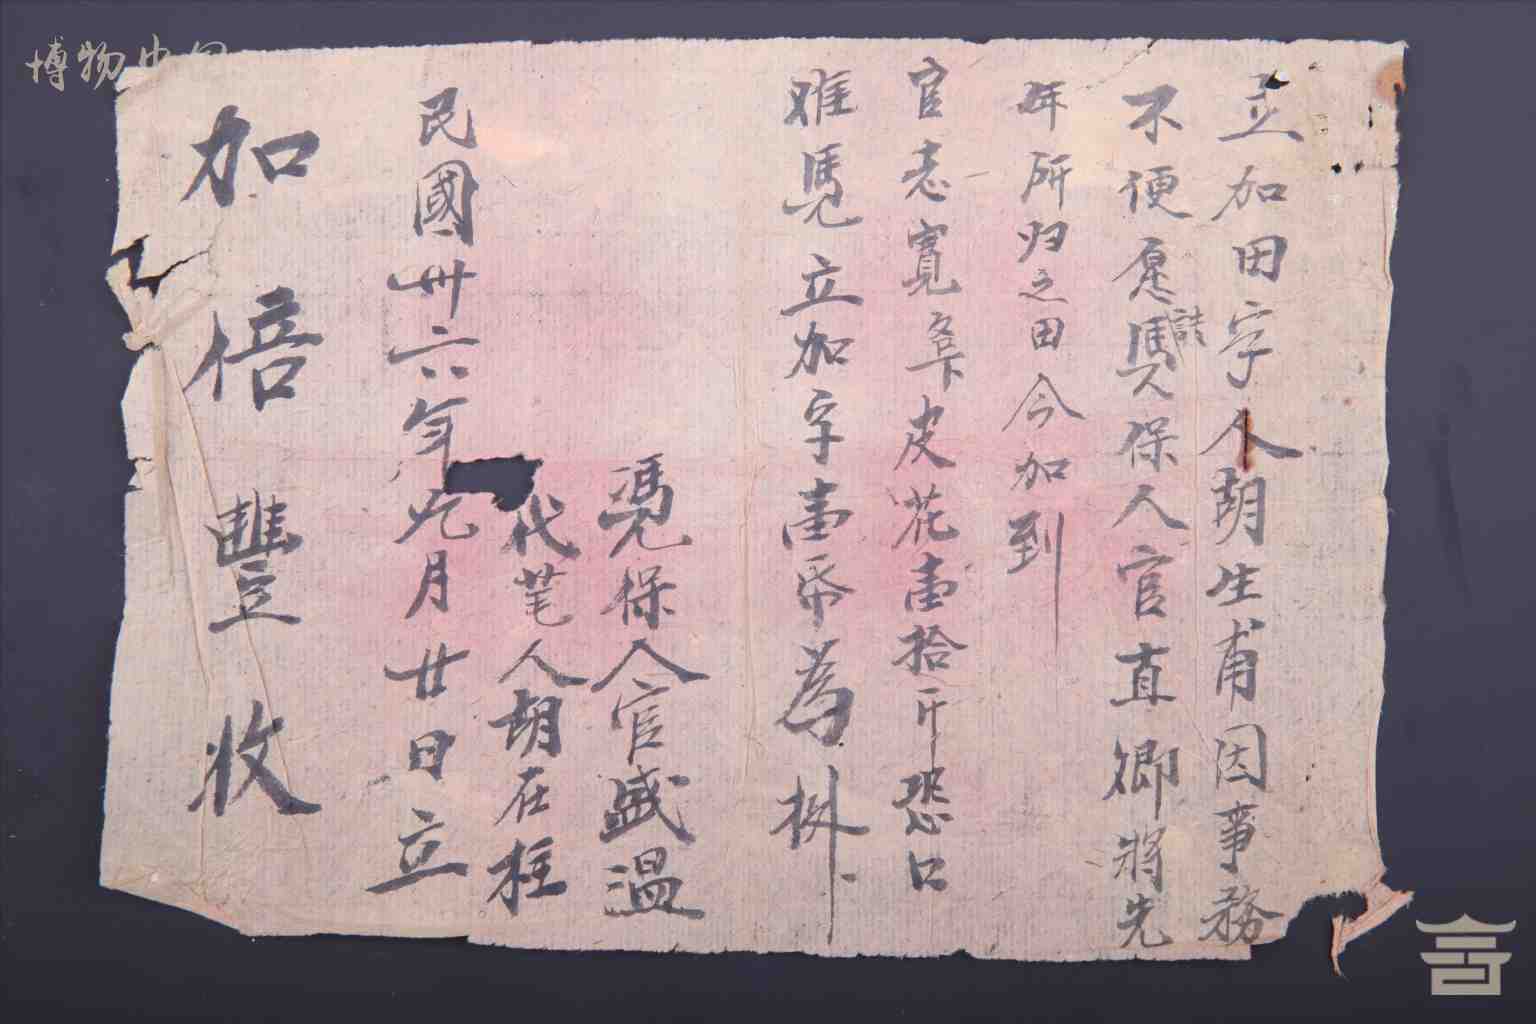 立加田字人胡生甫因事務
不便愿請凴保人官直卿將先
年所归之田今加到
官志寬名下皮花壹拾斤恐口
難凴立加字壹帋為據
凴保人官盛温
代筆人胡在柱
民國卅六年九月廿日立
加倍豐收
博物中国